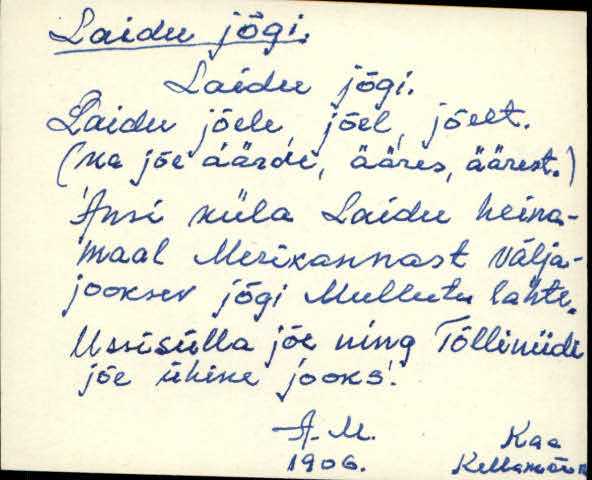 Laidu jõgi.
Laidu jõgi.
Laidu jõele, jõel, jõelt.
(ka jõe äärde, ääres, äärest.)
Ansi küla Laidu heina-
maal Merikannast välja-
jooksev jõgi Mullutu lahte.
Ussisilla jõe ning Tõlliniidi
jõe ühine jooks.
A. M.
1906.
Kaa